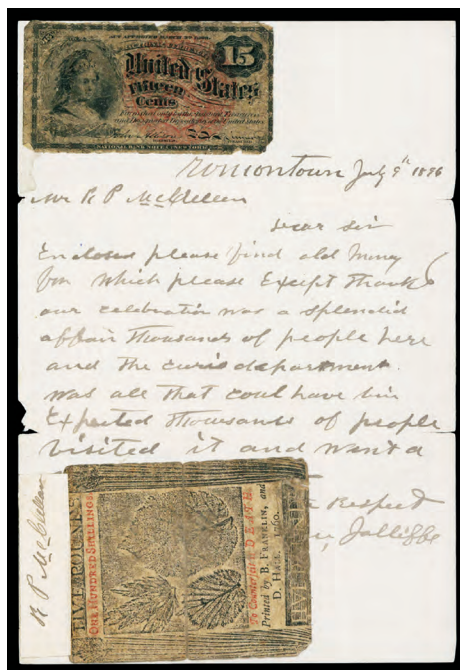 15
United States
Fifteen
Cents
15
Uniontown July 9th 1896
Mr R P McClellan
Dear Sir
Enclosed please find old money
for which please Except thanks
our celebration was a splendid
affair thousands of people here
and the curio department
was all that coul have bin
Expected thousands of people
visited it and want a
Respect
Jolliffe
R P McClellan
FIVE POUNDS
ONE HUNDRED SHILLINGS
To Counterfeit is DEATH
Printed by B. FRANKLIN, and
D. HALL. 1760.